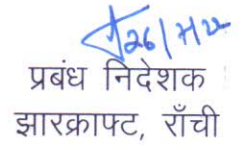 26/7/22
प्रबंध निदेशक
झारक्राफ्ट, राँची